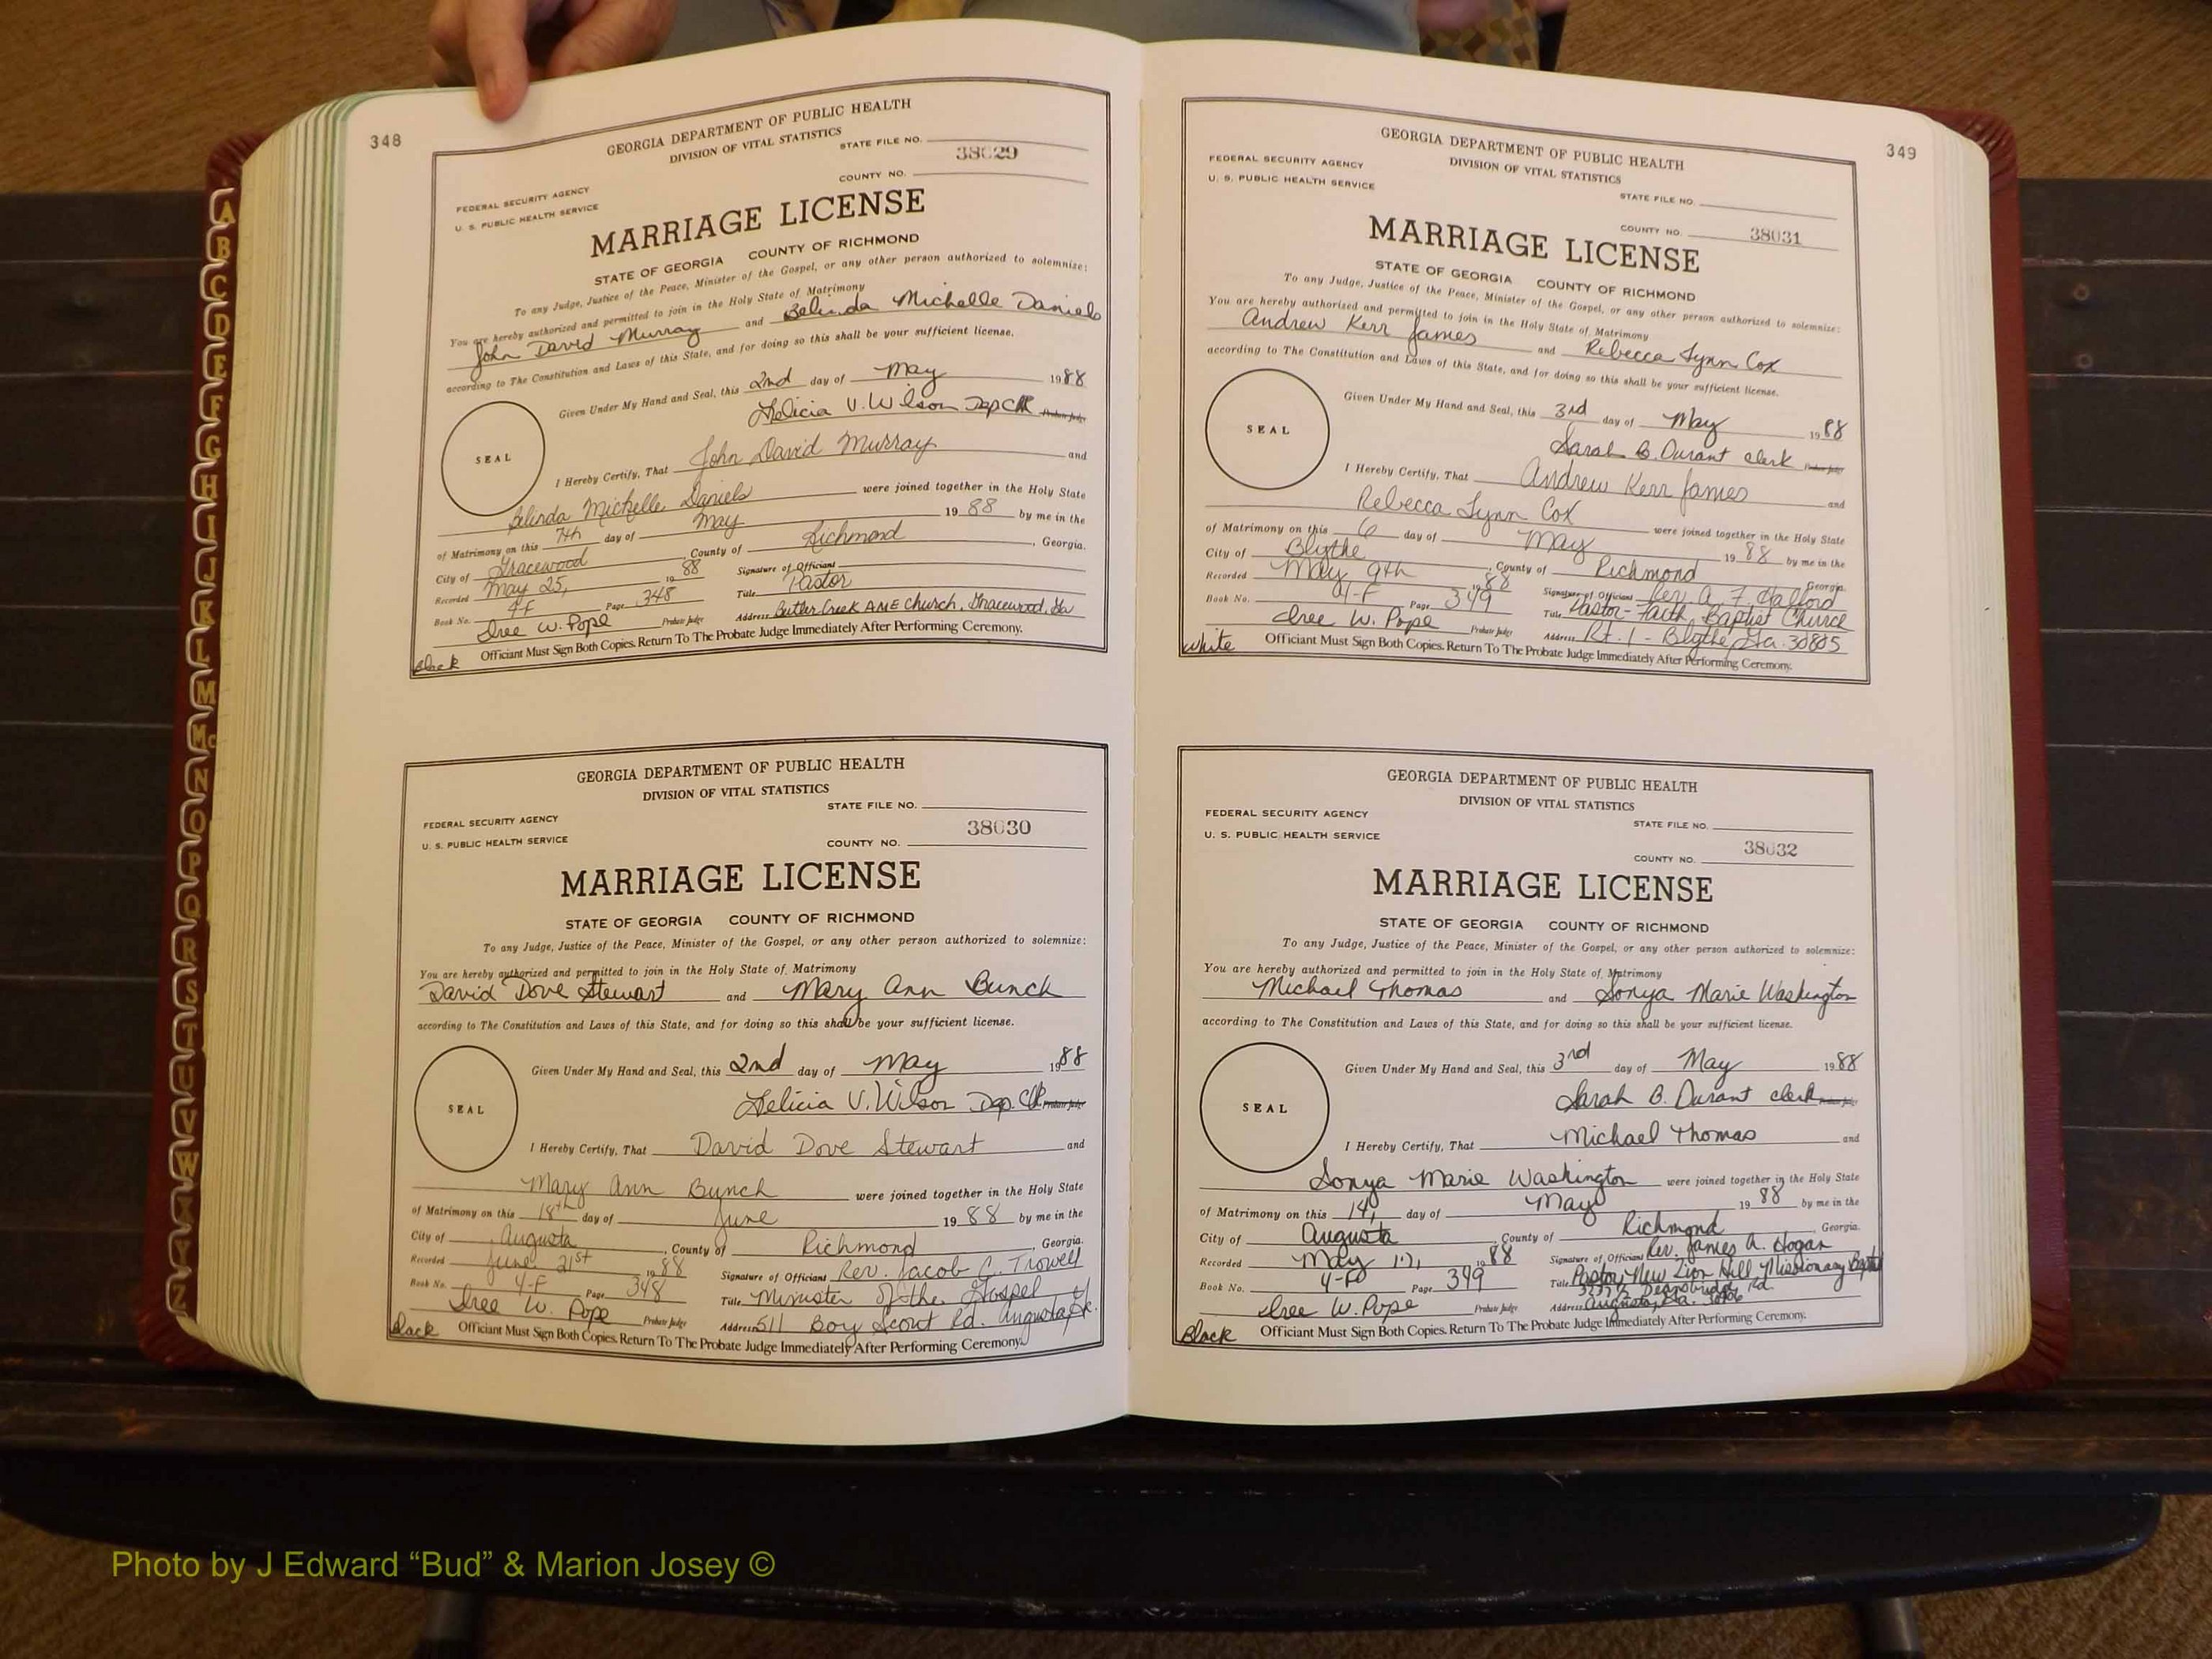 348
GEORGIA DEPARTMENT OF PUBLIC HEALTH
DIVISION OF VITAL STATISTICS
STATE FILE NO.
38029
COUNTY NO.
FEDERAL SECURITY AGENCY
U. S. PUBLIC HEALTH SERVICE
MARRIAGE LICENSE
STATE OF GEORGIA COUNTY OF RICHMOND
To any Judge, Justice of the Peace, Minister of the Gospel, or any other person authorized to solemnize:
You are hereby authorized and permitted to join in the Holy State of Matrimony
John David Murray and Belinda Michelle Daniels
according to The Constitution and Laws of this State, and for doing so this shall be your sufficient license.
Given Under My Hand and Seal, this 2nd day of May 1988
Felicia V. Wilson Dep Clk Probate Judge
SEAL
I Hereby Certify, That John David Murray and
Belinda Michelle Daniels were joined together in the Holy State
of Matrimony on this 7th day of May 19 88 by me in the
City of Gracewood, County of Richmond, Georgia.
Recorded May 25, 19 88 Signature of Officiant
Book No. 4F Page 348 Title Pastor
Iree W. Pope Probate Judge Address Butler Creek AME Church, Gracewood, Ga
Black Officiant Must Sign Both Copies. Return To The Probate Judge Immediately After Performing Ceremony.
GEORGIA DEPARTMENT OF PUBLIC HEALTH
DIVISION OF VITAL STATISTICS
STATE FILE NO.
FEDERAL SECURITY AGENCY
38030
U. S. PUBLIC HEALTH SERVICE
COUNTY NO.
MARRIAGE LICENSE
STATE OF GEORGIA COUNTY OF RICHMOND
To any Judge, Justice of the Peace, Minister of the Gospel, or any other person authorized to solemnize:
You are hereby authorized and permitted to join in the Holy State of Matrimony
David Dove Stewart and Mary Ann Bunch
according to The Constitution and Laws of this State, and for doing so this shall be your sufficient license.
Given Under My Hand and Seal, this 2nd day of May 1988
Felicia V. Wilson Dep. Clk Probate Judge
SEAL
I Hereby Certify, That David Dove Stewart and
Mary Ann Bunch were joined together in the Holy State
of Matrimony on this 18th day of June 19 88 by me in the
City of Augusta, County of Richmond, Georgia.
Recorded June 21st 19 88 Signature of Officiant Rev. Jacob C. Trowell
Book No. 4-F Page 348 Title Minister of the Gospel
Iree W. Pope Probate Judge Address 511 Boy Scout Rd. Augusta,
Black Officiant Must Sign Both Copies. Return To The Probate Judge Immediately After Performing Ceremony.
349
GEORGIA DEPARTMENT OF PUBLIC HEALTH
DIVISION OF VITAL STATISTICS
FEDERAL SECURITY AGENCY
U. S. PUBLIC HEALTH SERVICE
STATE FILE NO.
COUNTY NO. 38031
MARRIAGE LICENSE
STATE OF GEORGIA COUNTY OF RICHMOND
To any Judge, Justice of the Peace, Minister of the Gospel, or any other person authorized to solemnize:
You are hereby authorized and permitted to join in the Holy State of Matrimony
Andrew Kerr James and Rebecca Lynn Cox
according to The Constitution and Laws of this State, and for doing so this shall be your sufficient license.
Given Under My Hand and Seal, this 3rd day of May 1988
Sarah B. Durant clerk Probate Judge
SEAL
I Hereby Certify, That Andrew Kerr James and
Rebecca Lynn Cox were joined together in the Holy State
of Matrimony on this 6 day of May 19 88 by me in the
City of Blythe, County of Richmond Georgia.
Recorded May 9th 19 88 Signature of Officiant Rev. A. F. Halford
Book No. 4-F Page 349 Title Pastor-Faith Baptist Church
Iree W. Pope Probate Judge Address Rt. 1 - Blythe, Ga. 30805
White Officiant Must Sign Both Copies. Return To The Probate Judge Immediately After Performing Ceremony.
GEORGIA DEPARTMENT OF PUBLIC HEALTH
DIVISION OF VITAL STATISTICS
FEDERAL SECURITY AGENCY
STATE FILE NO.
U. S. PUBLIC HEALTH SERVICE
38032
COUNTY NO.
MARRIAGE LICENSE
STATE OF GEORGIA COUNTY OF RICHMOND
To any Judge, Justice of the Peace, Minister of the Gospel, or any other person authorized to solemnize:
You are hereby authorized and permitted to join in the Holy State of Matrimony
Michael Thomas and Sonya Marie Washington
according to The Constitution and Laws of this State, and for doing so this shall be your sufficient license.
Given Under My Hand and Seal, this 3rd day of May 1988
Sarah B. Durant clerk Probate Judge
SEAL
I Hereby Certify, That Michael Thomas and
Sonya Marie Washington were joined together in the Holy State
of Matrimony on this 14, day of May 19 88 by me in the
City of Augusta, County of Richmond, Georgia.
Recorded May 17, 1988 Signature of Officiant Rev. James A. Hogan
Book No. 4-F Page 349 Title Pastor, New Zion Hill Missionary Baptist
Deansbridge Rd.
Iree W. Pope Probate Judge Address Augusta, Ga. 30906
Black Officiant Must Sign Both Copies. Return To The Probate Judge Immediately After Performing Ceremony.
A
B
C
D
E
F
G
H
I
J
K
L
M
Mc
N
O
P
Q
R
S
T
U
V
W
X
Y
Z
Photo by J Edward “Bud” & Marion Josey ©